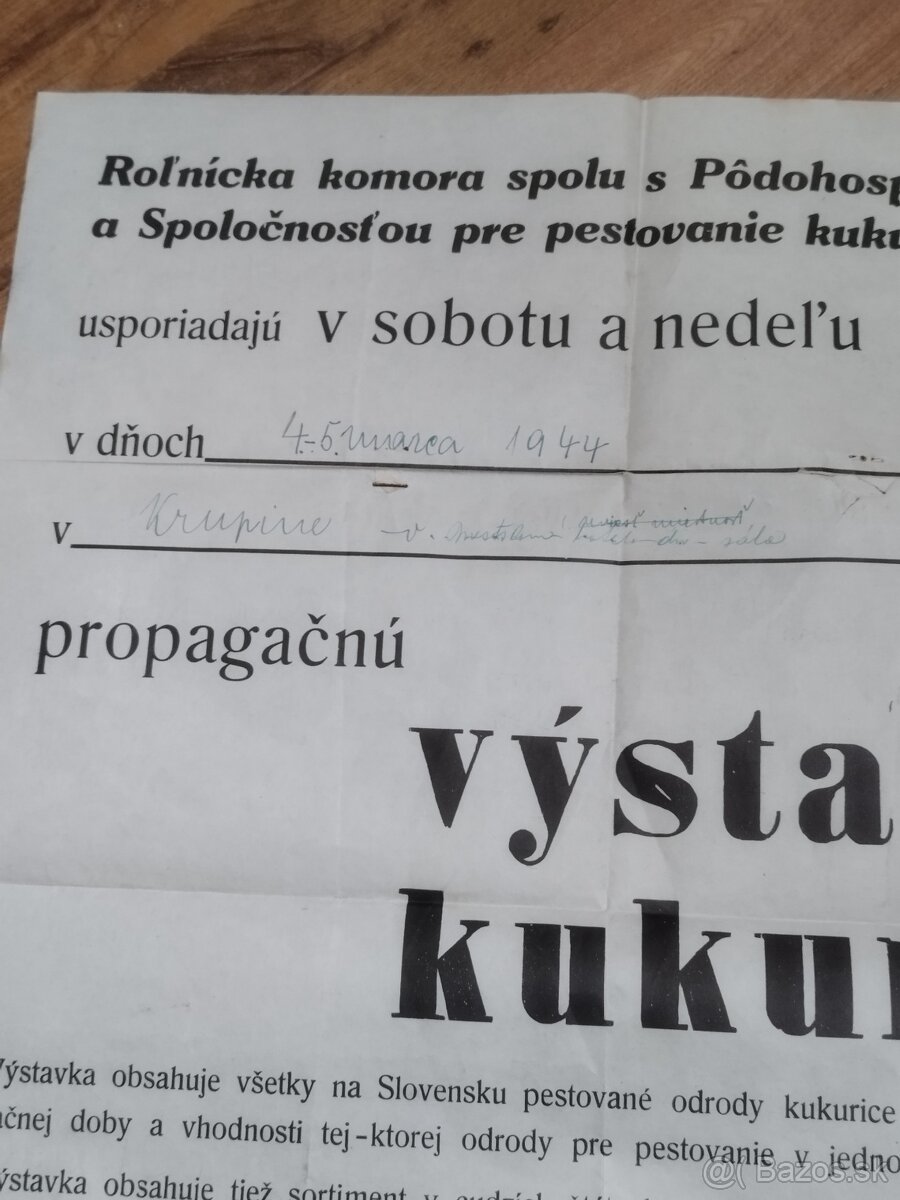 Roľnícka komora spolu s Pôdohosp
a Spoločnosťou pre pestovanie kuku
usporiadajú v sobotu a nedeľu
v dňoch 4.-5. marca 1944
v Krupine - v.
propagačnú
výsta
kukur
Výstavka obsahuje všetky na Slovensku pestované odrody kukurice
ačnej doby a vhodnosti tej-ktorej odrody pre pestovanie v jedno
ýstavka obsahuje tiež sortiment v
@ Bazos.sk